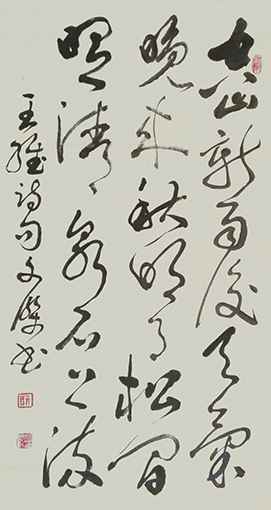 空山新雨後天氣
晚來秋明月松間
照清泉石上流
王維詩句文傑書